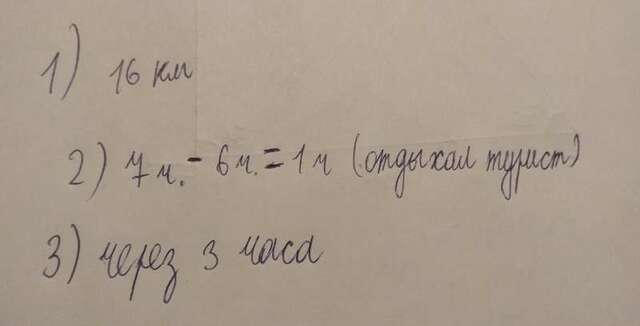 1) 16 км
2) 7 ч. - 6 ч. = 1 ч (отдыхал турист)
3) через 3 часа